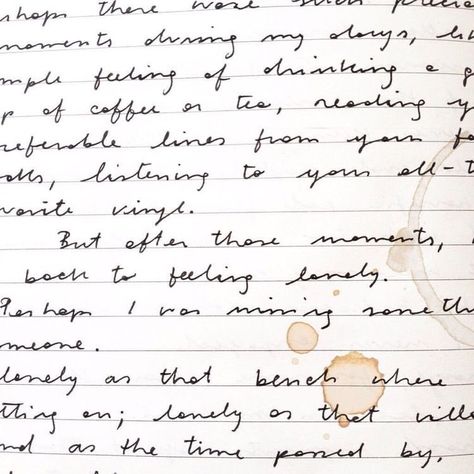 rhaps there were such precio
moments during my days, lik
mple feeling of drinking a g
p of coffee or tea, reading y
referable lines from your fa
ooks, listening to your all-t
vorite vinyl.
But after those moments, I
back to feeling lonely.
Perhaps I was missing someth
omeone.
lonely as that bench where
tting on; lonely as that villa
nd as the time passed by,